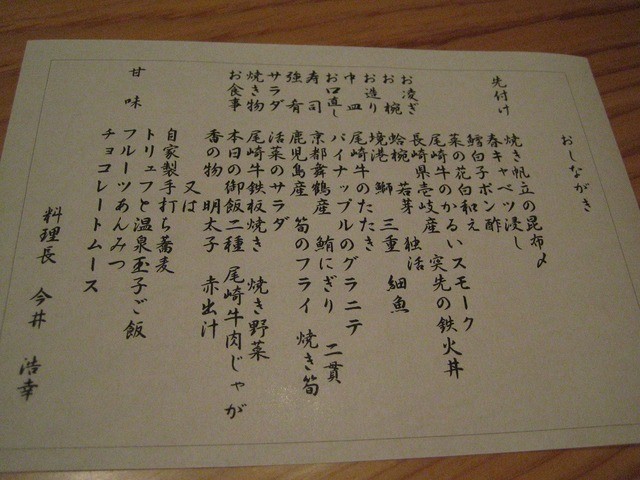 おしながき
先付け 焼き帆立の昆布〆
春キャベツ浸し
鱈白子ポン酢
菜の花白和え
尾崎牛のかるいスモーク
お凌ぎ 長崎県壱岐産 突先の鉄火丼
お椀 蛤椀 若芽 独活
お造り 境港 鰤 三重 細魚
中皿 尾崎牛のたたき
お口直し パイナップルのグラニテ
寿司 京都舞鶴産 鮪にぎり 二貫
強肴 鹿児島産 筍のフライ 焼き筍
サラダ 活菜のサラダ
焼き物 尾崎牛鉄板焼き 焼き野菜
お食事 本日の御飯二種 尾崎牛肉じゃが
香の物 明太子 赤出汁
又は
自家製手打ち蕎麦
トリュフと温泉玉子ご飯
甘味 フルーツあんみつ
チョコレートムース
料理長 今井 浩幸